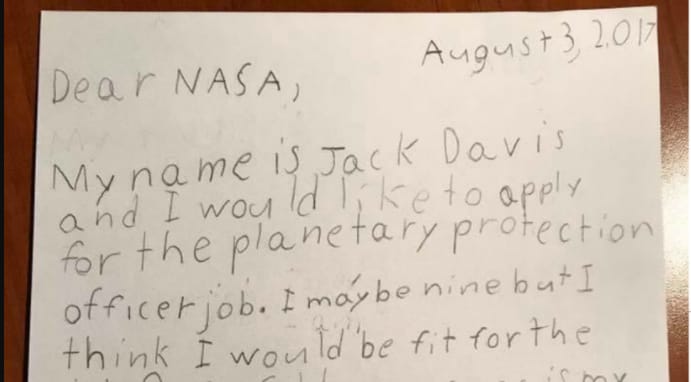 August 3, 2017
Dear NASA,
My name is Jack Davis
and I would like to apply
for the planetary protection
officer job. I may be nine but I
think I would be fit for the
is my